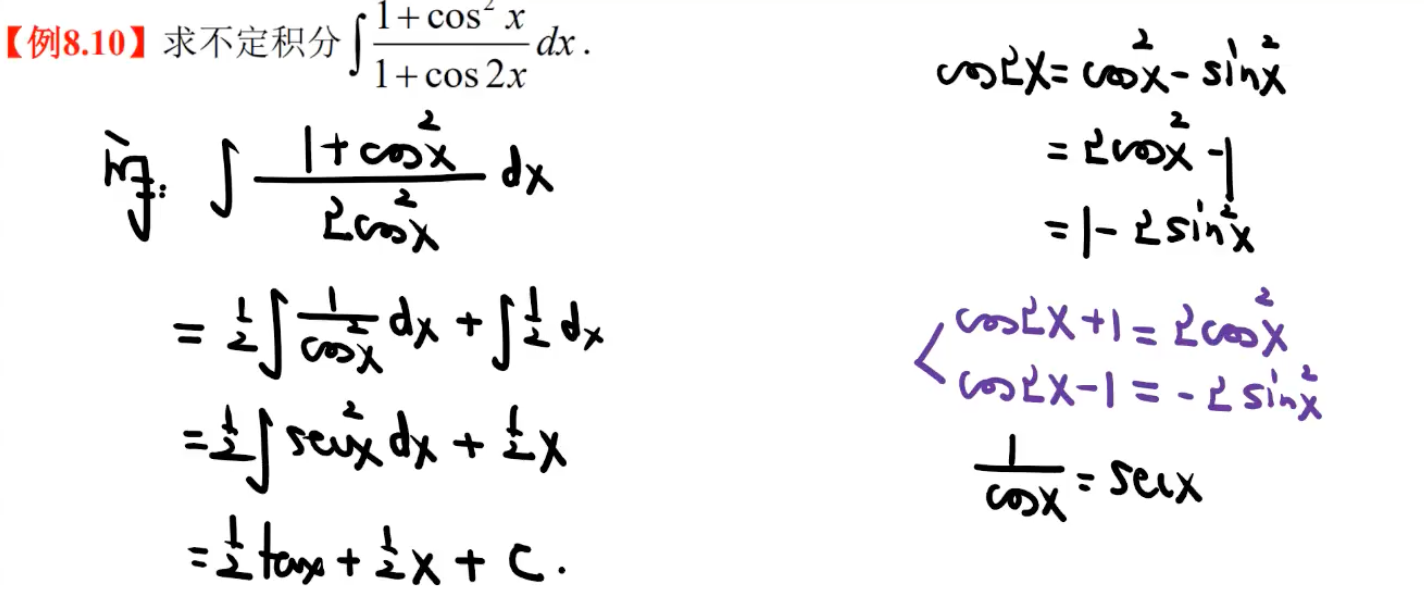 【例8.10】求不定积分 ∫ (1+cos² x)/(1+cos 2x) dx .
解: ∫ (1+cos²x)/(2cos²x) dx
= 1/2 ∫ 1/cos²x dx + ∫ 1/2 dx
= 1/2 ∫ sec²x dx + 1/2 x
= 1/2 tanx + 1/2 x + C .
cos2x = cos²x - sin²x
= 2cos²x - 1
= 1 - 2sin²x
cos2x+1 = 2cos²x
cos2x-1 = -2sin²x
1/cosx = secx